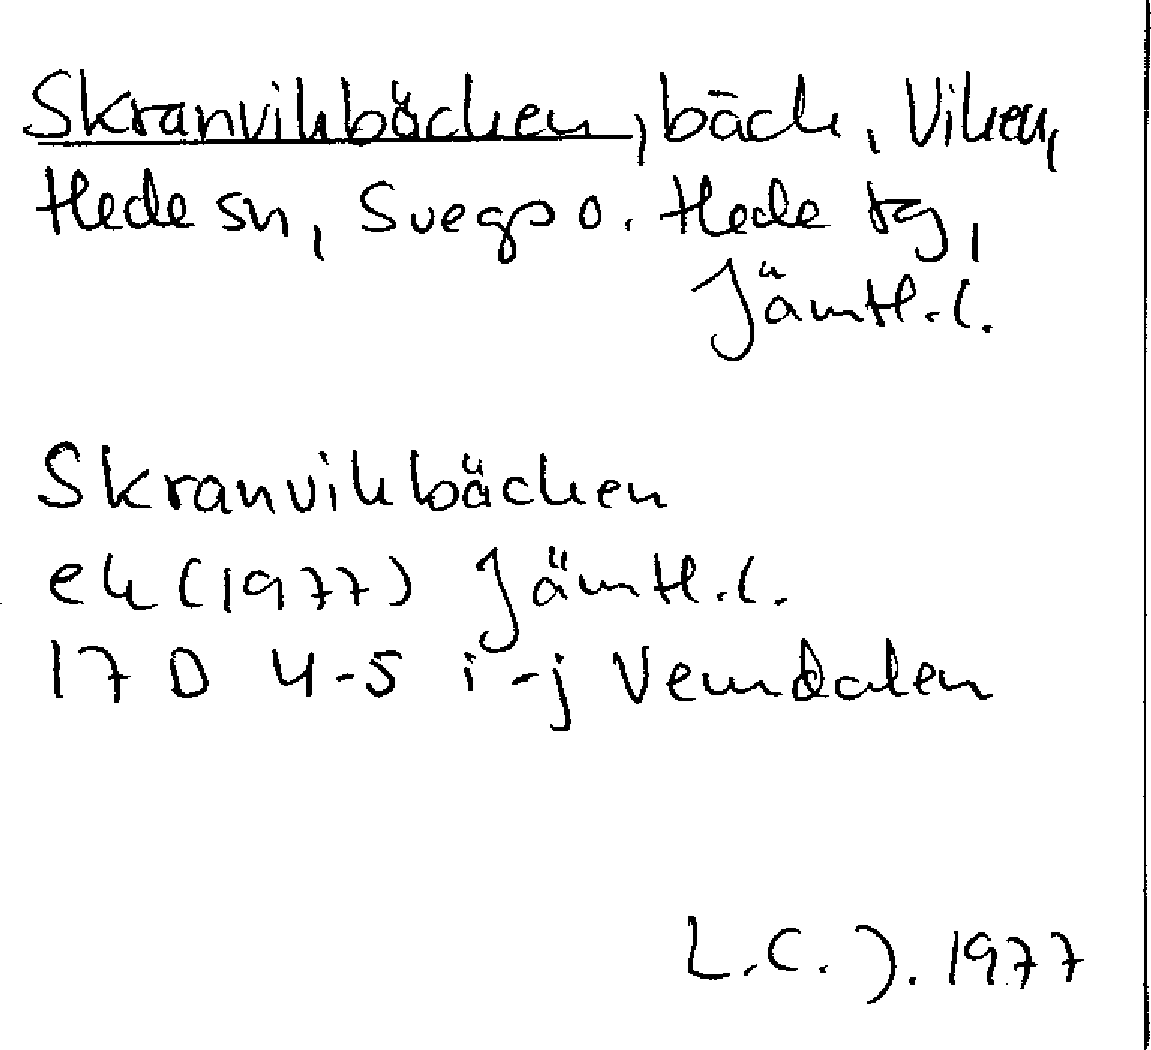 Skranvikbäcken, bäck, Viken,
Hede sn, Svegs o. Hede tg,
Jämtl. l.
Skranvikbäcken
ek (1977) Jämtl. l.
17 D 4-5 i-j Vemdalen
L.C. J. 1977